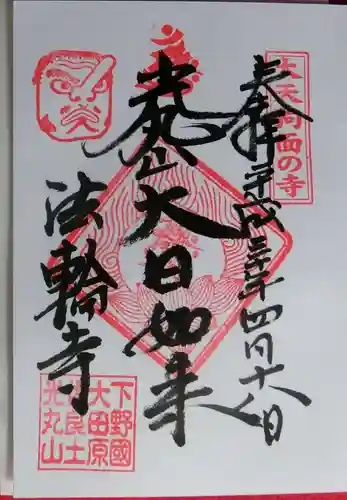 大天狗面の寺
奉拝
平成三十年四月十八日
光丸山大日如来
法輪寺
下野國
大田原
佐良土
光丸山